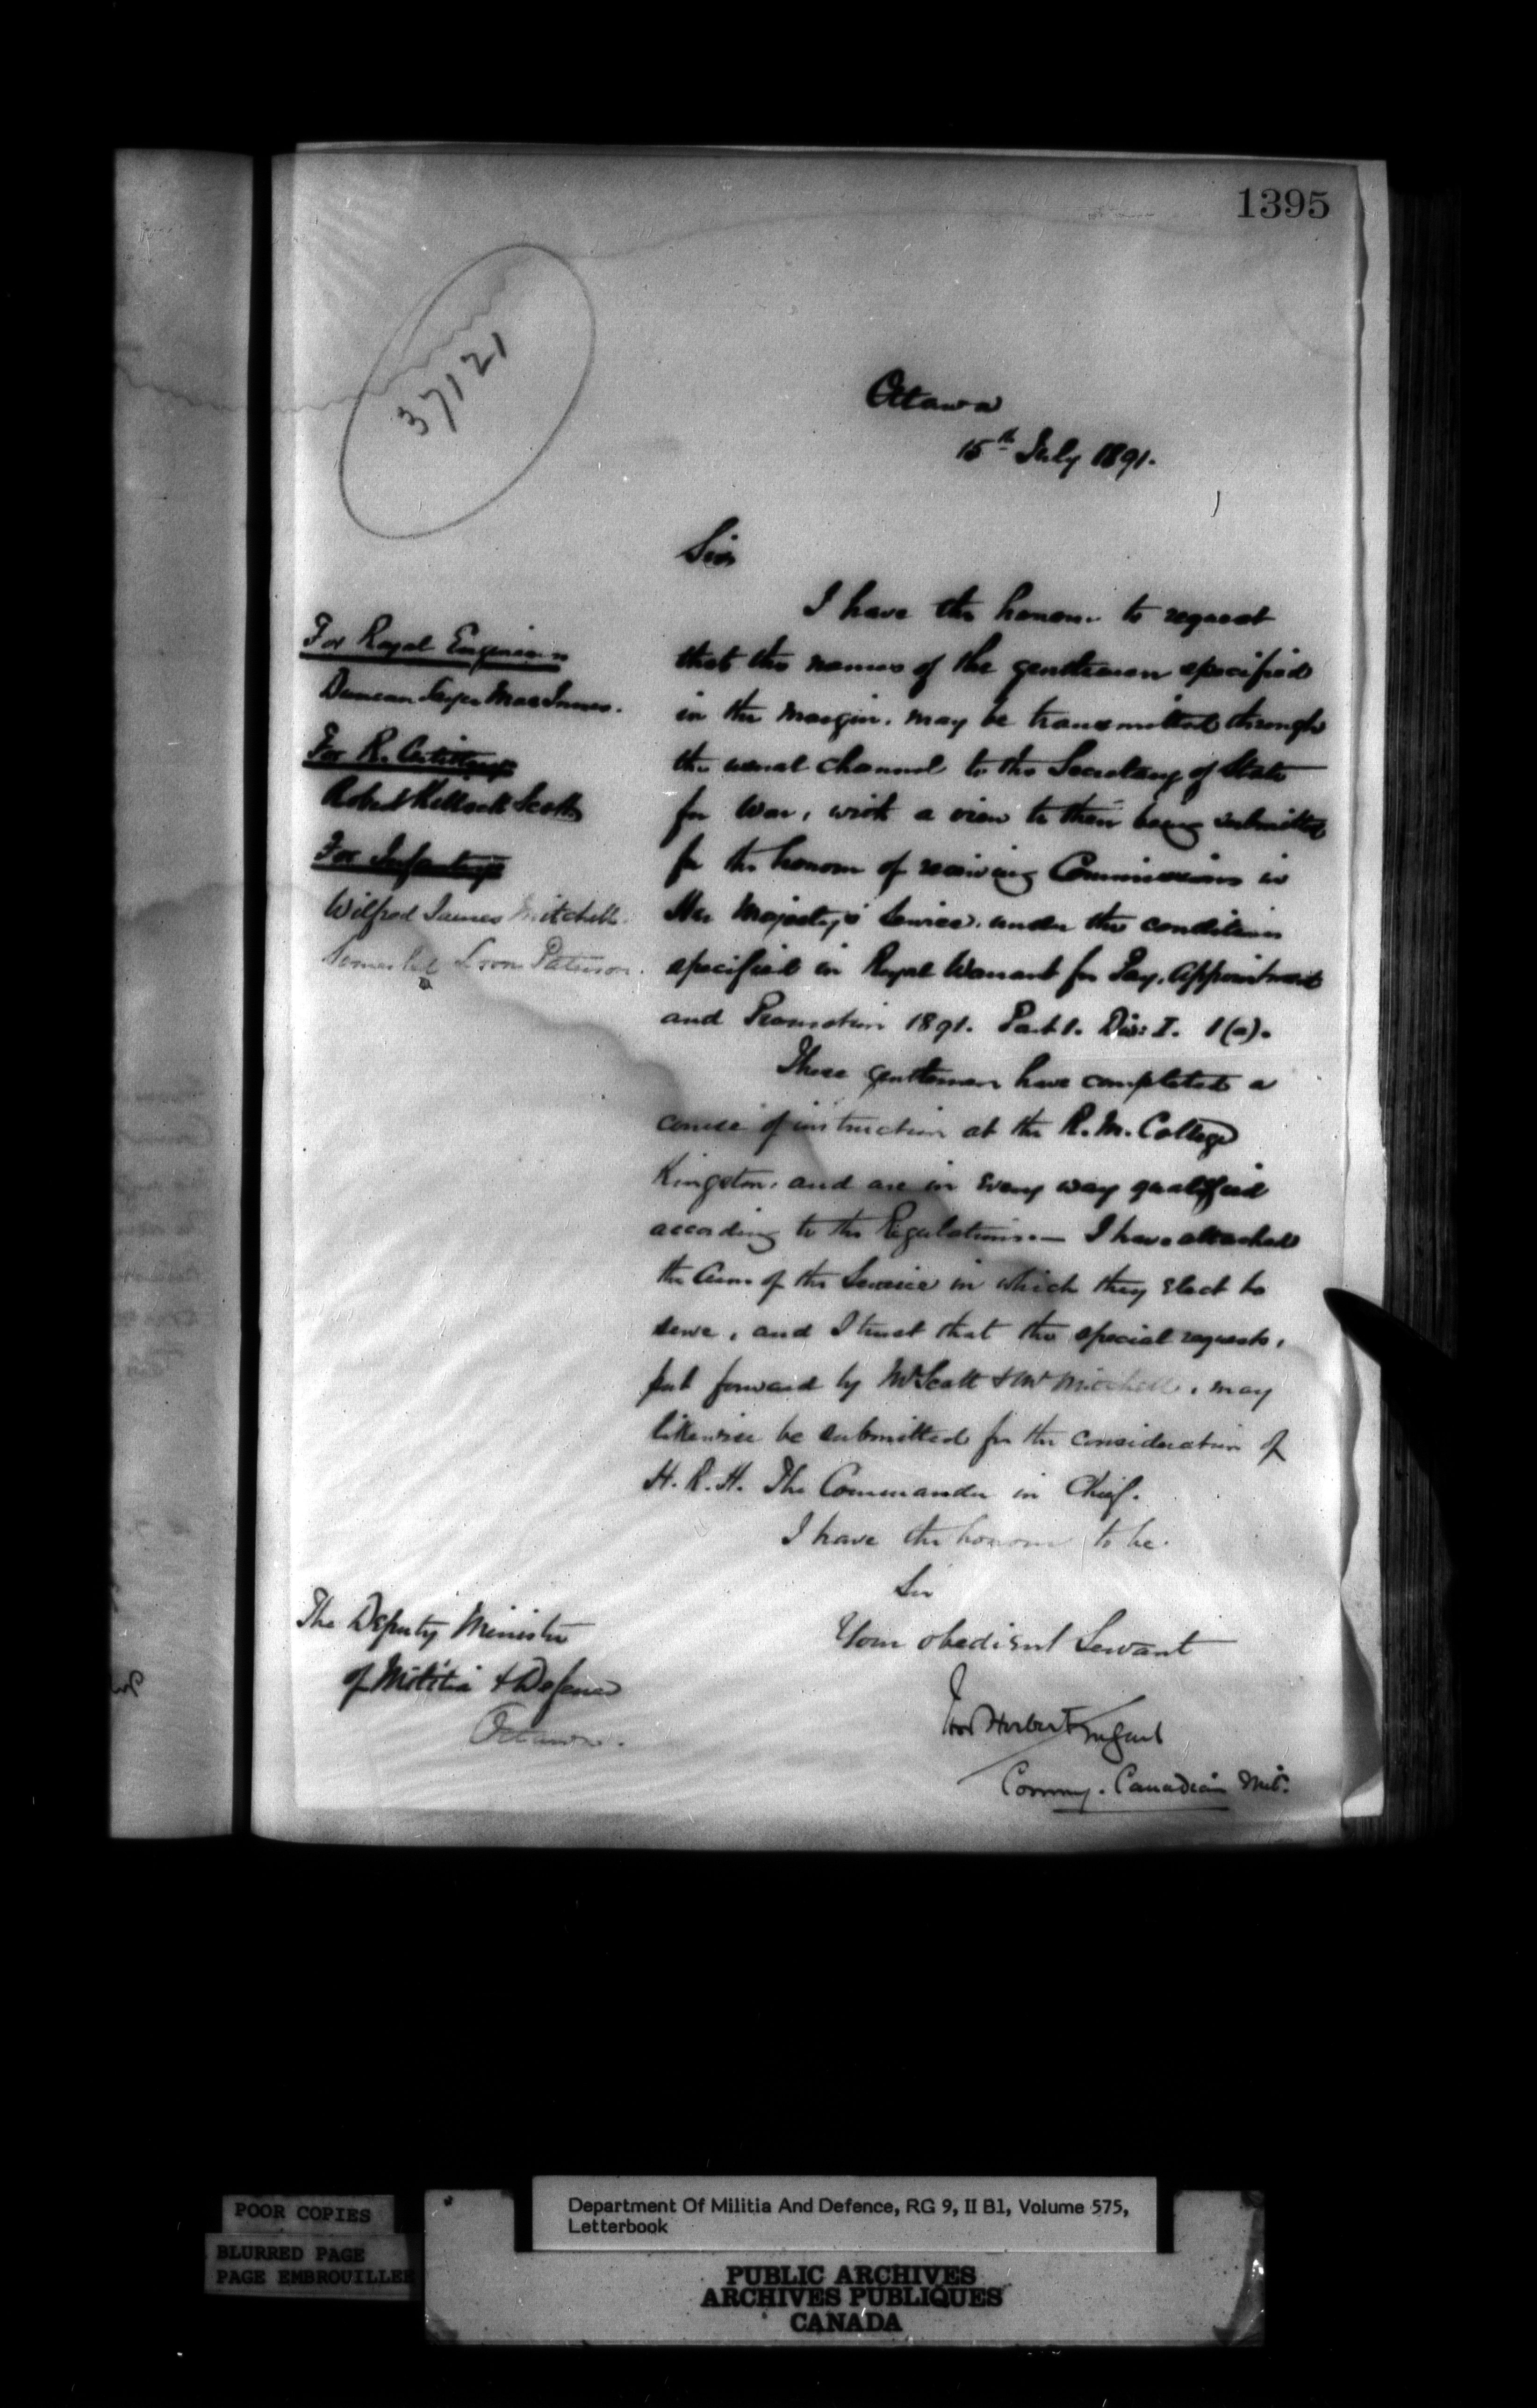 1395
37121
Ottawa
15th July 1891.
Sir
I have the honour to request
that the names of the gentlemen specified
in the margin, may be transmitted through
the usual channel to the Secretary of State
for War, with a view to their being submitted
for the honour of receiving Commissions in
Her Majesty's Service, under the conditions
specified in Royal Warrant for Pay, Appointment
and Promotion 1891. Part 1. Div: I. 1(a).
These gentlemen have completed a
course of instruction at the R. M. College
Kingston, and are in every way qualified
according to the Regulations.— I have attached
the Arm of the Service in which they elect to
serve, and I trust that the special requests,
put forward by Mr Scott & Mr Mitchell, may
likewise be submitted for the consideration of
H. R. H. The Commander in Chief.
I have the honour to be
Sir
Your obedient Servant
Ivor Herbert
Commg. Canadian Mil.
For Royal Engineers
Duncan Sayre MacInnes.
For R. Artillery
Robert Kellock Scott
For Infantry
Wilfred James Mitchell
Paterson.
The Deputy Minister
of Militia & Defence
Ottawa.
POOR COPIES
BLURRED PAGE
PAGE EMBROUILLEE
Department Of Militia And Defence, RG 9, II B1, Volume 575,
Letterbook
PUBLIC ARCHIVES
ARCHIVES PUBLIQUES
CANADA